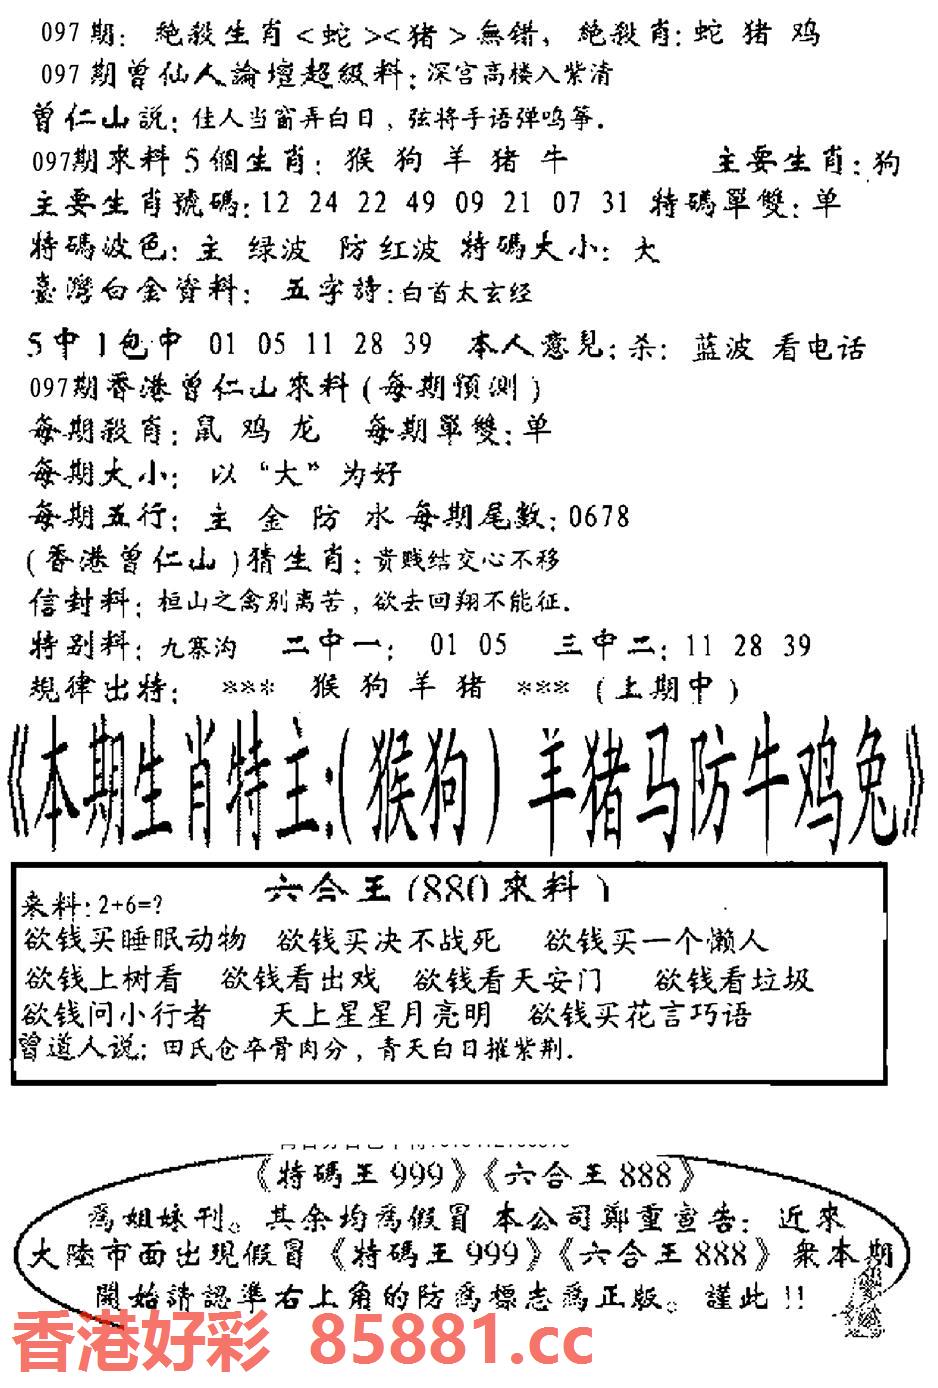 097期: 絶殺生肖<蛇><猪>無错, 絶殺肖:蛇 猪 鸡
097期曾仙人論壇超級料:深宫高楼入紫清
曾仁山説:佳人当窗弄白日,弦将手语弹鸣筝.
097期來料5個生肖:猴 狗 羊 猪 牛 主要生肖:狗
主要生肖號碼:12 24 22 49 09 21 07 31 特碼單雙:单
特碼波色:主 绿波 防红波 特碼大小:大
臺灣白金資料: 五字詩:白首太玄经
5中1包中 01 05 11 28 39 本人意見:杀: 蓝波 看电话
097期香港曾仁山來料(每期預測)
每期殺肖:鼠 鸡 龙 每期單雙:单
每期大小: 以“大”为好
每期五行: 主 金 防 水 每期尾數:0678
(香港曾仁山)猜生肖:贵贱结交心不移
信封料:桓山之禽别离苦,欲去回翔不能征.
特别料:九寨沟 二中一: 01 05 三中二:11 28 39
規律出特: *** 猴 狗 羊 猪 *** (上期中)
《本期生肖特主:(猴狗)羊猪马防牛鸡兔》
六合王(880來料)
来料:2+6=?
欲钱买睡眠动物 欲钱买决不战死 欲钱买一个懒人
欲钱上树看 欲钱看出戏 欲钱看天安门 欲钱看垃圾
欲钱问小行者 天上星星月亮明 欲钱买花言巧语
曾道人说:田氏仓卒骨肉分,青天白日摧紫荆.
《特碼王999》《六合王888》
為姐妹刊。其余均為假冒 本公司鄭重宣告: 近來
大陸市面出現假冒《特碼王999》《六合王888》衆本期
開始請認準右上角的防為標志為正版。謹此!!
香港好彩 85881.cc